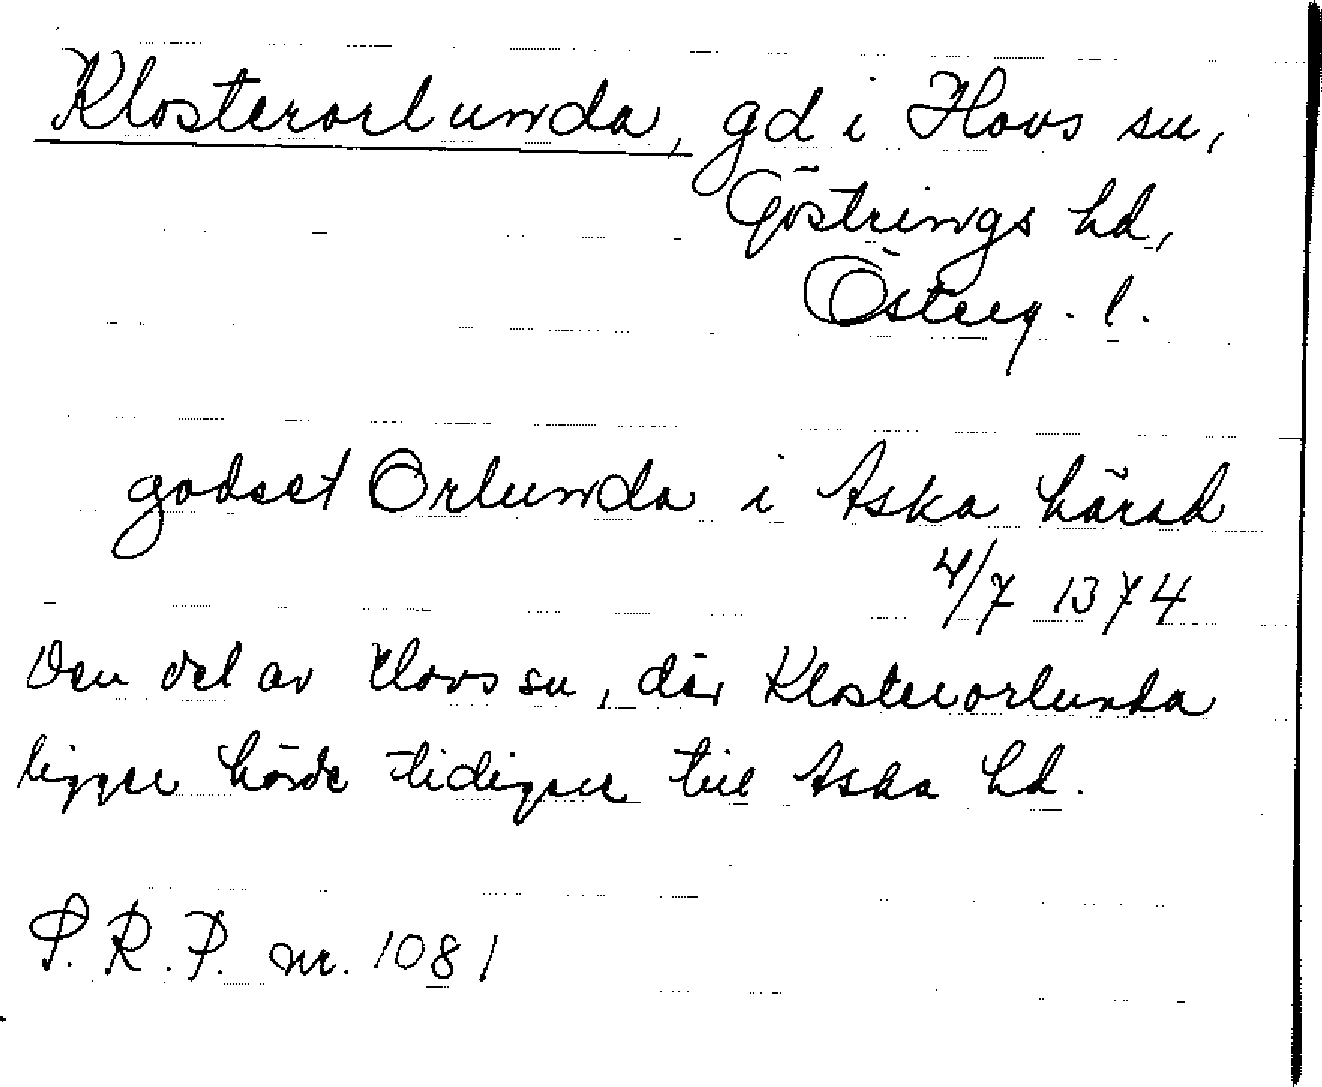 Klosterorlunda, gd i Hovs sn,
Göstrings hd,
Österg. l.
godset Orlunda i Aska härad
4/7 1374
Den del av Hovs sn, där Klosterorlunda
ligger hörde tidigare till Aska hd.
P.R.P. nr. 1081